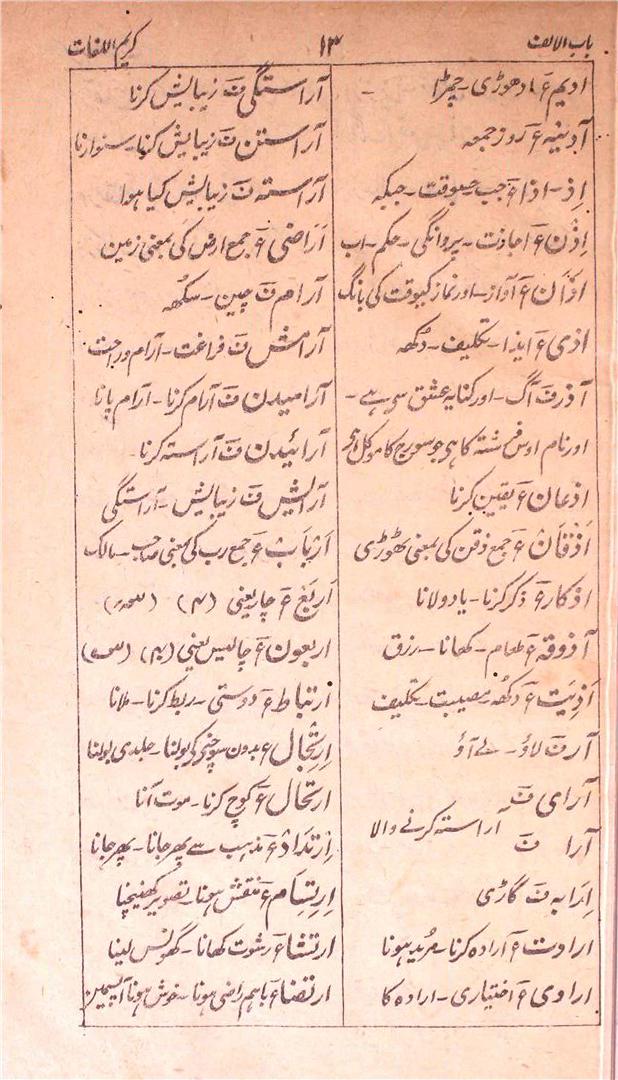 باب الالف
۱۳
کریم اللغات
ادیم ع ادھوڑی۔ چمڑا
آدینہ ع روز جمعہ
اِذ۔ اذا ع جب۔ جسوقت۔ جبکہ
اِذْن ع اجازت۔ پروانگی۔ حکم۔ اب
اذان ع آواز۔ اور نماز کیوقت کی بانگ
اذی ع ایذا۔ تکلیف۔ دکھ
آذر ف آگ۔ اور کنایہ عشق سے ہے۔
اور نام اوس فرشتہ کا ہی جو سورج کا موکل ہی
اذعان ع یقین کرنا
اَذْقَانْ ع جمع ذقن کی بمعنی ٹھوڑی
اذکار ع ذکر کرنا۔ یاد دلانا
آذوقہ ع طعام۔ کھانا۔ رزق
اَذِیَت ع دکھ۔ مصیبت۔ تکلیف
آر ف لاؤ۔ لے آؤ
آرای ف
آرا ف
آراستہ کرنے والا
اِرَابہ ف گاڑی
ارادت ع ارادہ کرنا۔ مرید ہونا
ارادی ع اختیاری۔ ارادہ کا
آراستگی ف زیبایش کرنا
آراستن ف زیبایش کرنا۔ سنوارنا
آراستہ ف زیبایش کیا ہوا
اَرَاضی ع جمع ارض کی بمعنی زمین
آرام ف چین۔ سکھ
آرامش ف فراغت۔ آرام و راحت
آرامیدن ف آرام کرنا۔ آرام پانا
آرائیدن ف آراستہ کرنا
آرایش ف زیبایش۔ آراستگی
اَرْبَابْ ع جمع رب کی بمعنی صاحب۔ مالک
اَربَعْ ع چار یعنی (۴)
اربعون ع چالیس یعنی (۴۰)
ارتباط ع دوستی۔ ربط کرنا۔ ملانا
اِرتِجَال ع بدون سوچنے کی بولنا۔ جلدی بولنا
ارتحال ع کوچ کرنا۔ موت آنا
اِرْتِدَادْ ع مذہب سے پھر جانا۔ پھر جانا
اِرتِسَام ع منقش ہونا۔ تصویر کھینچنا
ارتشاء ع رشوت کھانا۔ گھونس لینا
ارتضاء ع باہم راضی ہونا۔ خوش ہونا آپسمین